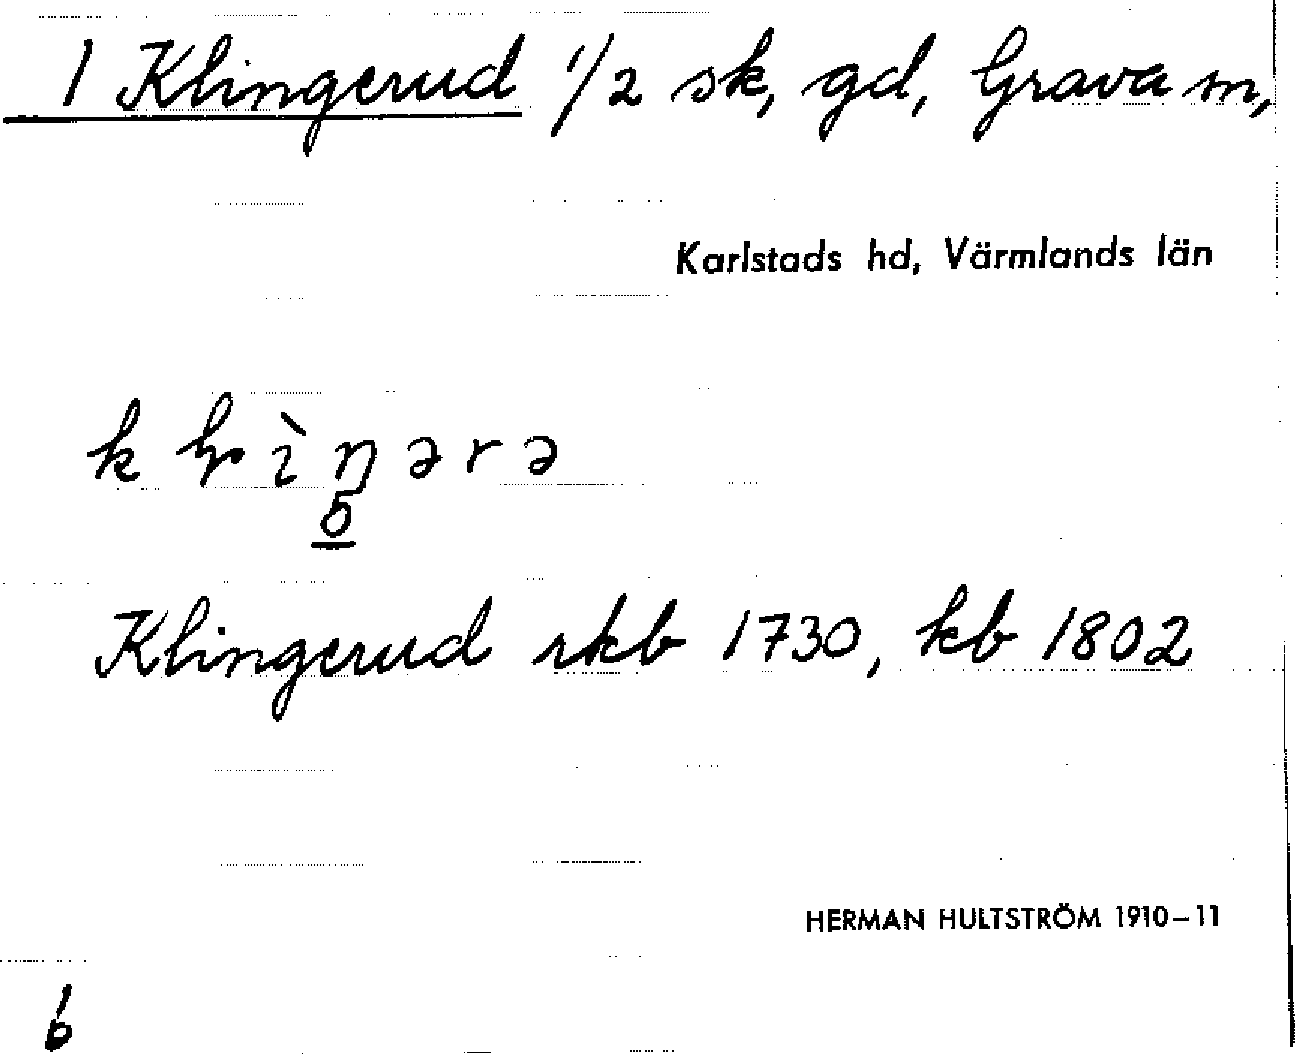 1 Klingerud 1/2 sk, gd, Grava sn,
Karlstads hd, Värmlands län
Klingerud skb 1730, kb 1802
HERMAN HULTSTRÖM 1910-11
6